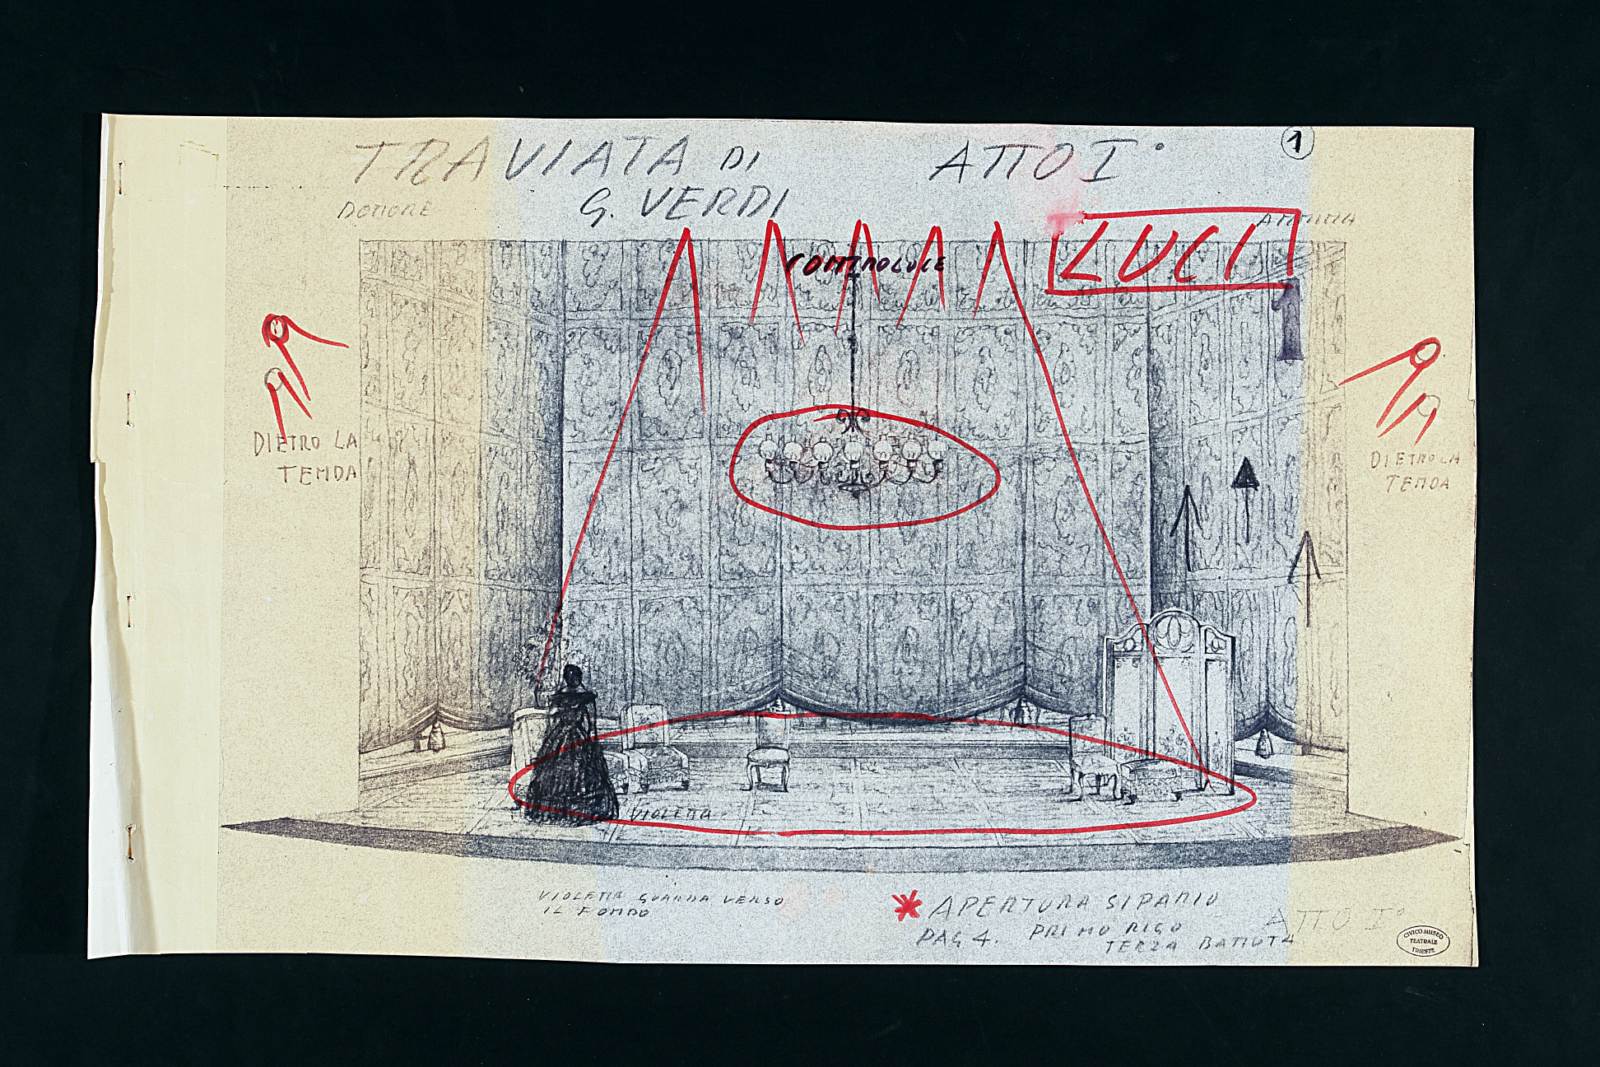 TRAVIATA DI
G. VERDI
ATTO I°
1
DOTTORE
ANNINA
CONTROLUCE
LUCI
1
DIETRO LA
TENDA
DIETRO LA
TENDA
VIOLETTA
VIOLETTA GUARDA VERSO
IL FONDO
* APERTURA SIPARIO
PAG 4. PRIMO RIGO
TERZA BATTUTA
ATTO I°
CIVICO MUSEO
TEATRALE
TRIESTE